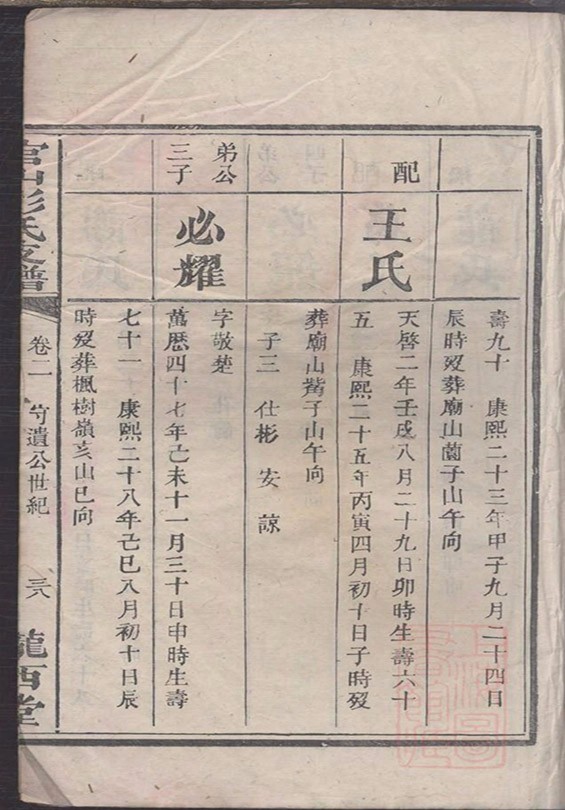 壽九十 康熙二十三年甲子九月二十四日
辰時歿葬廟山薗子山午向
配
王氏
天啓二年壬戌八月二十九日卯時生壽六十
五 康熙二十五年丙寅四月初十日子時歿
葬廟山觜子山午向
子三 仕彬 安 諒
弟公
三子
必耀
字敬楚
萬歷四十七年己未十一月三十日申時生壽
七十一 康熙二十八年己巳八月初十日辰
時歿葬楓樹嶺亥山巳向
彭氏支譜
卷二 守遺公世紀 三八
隴西堂